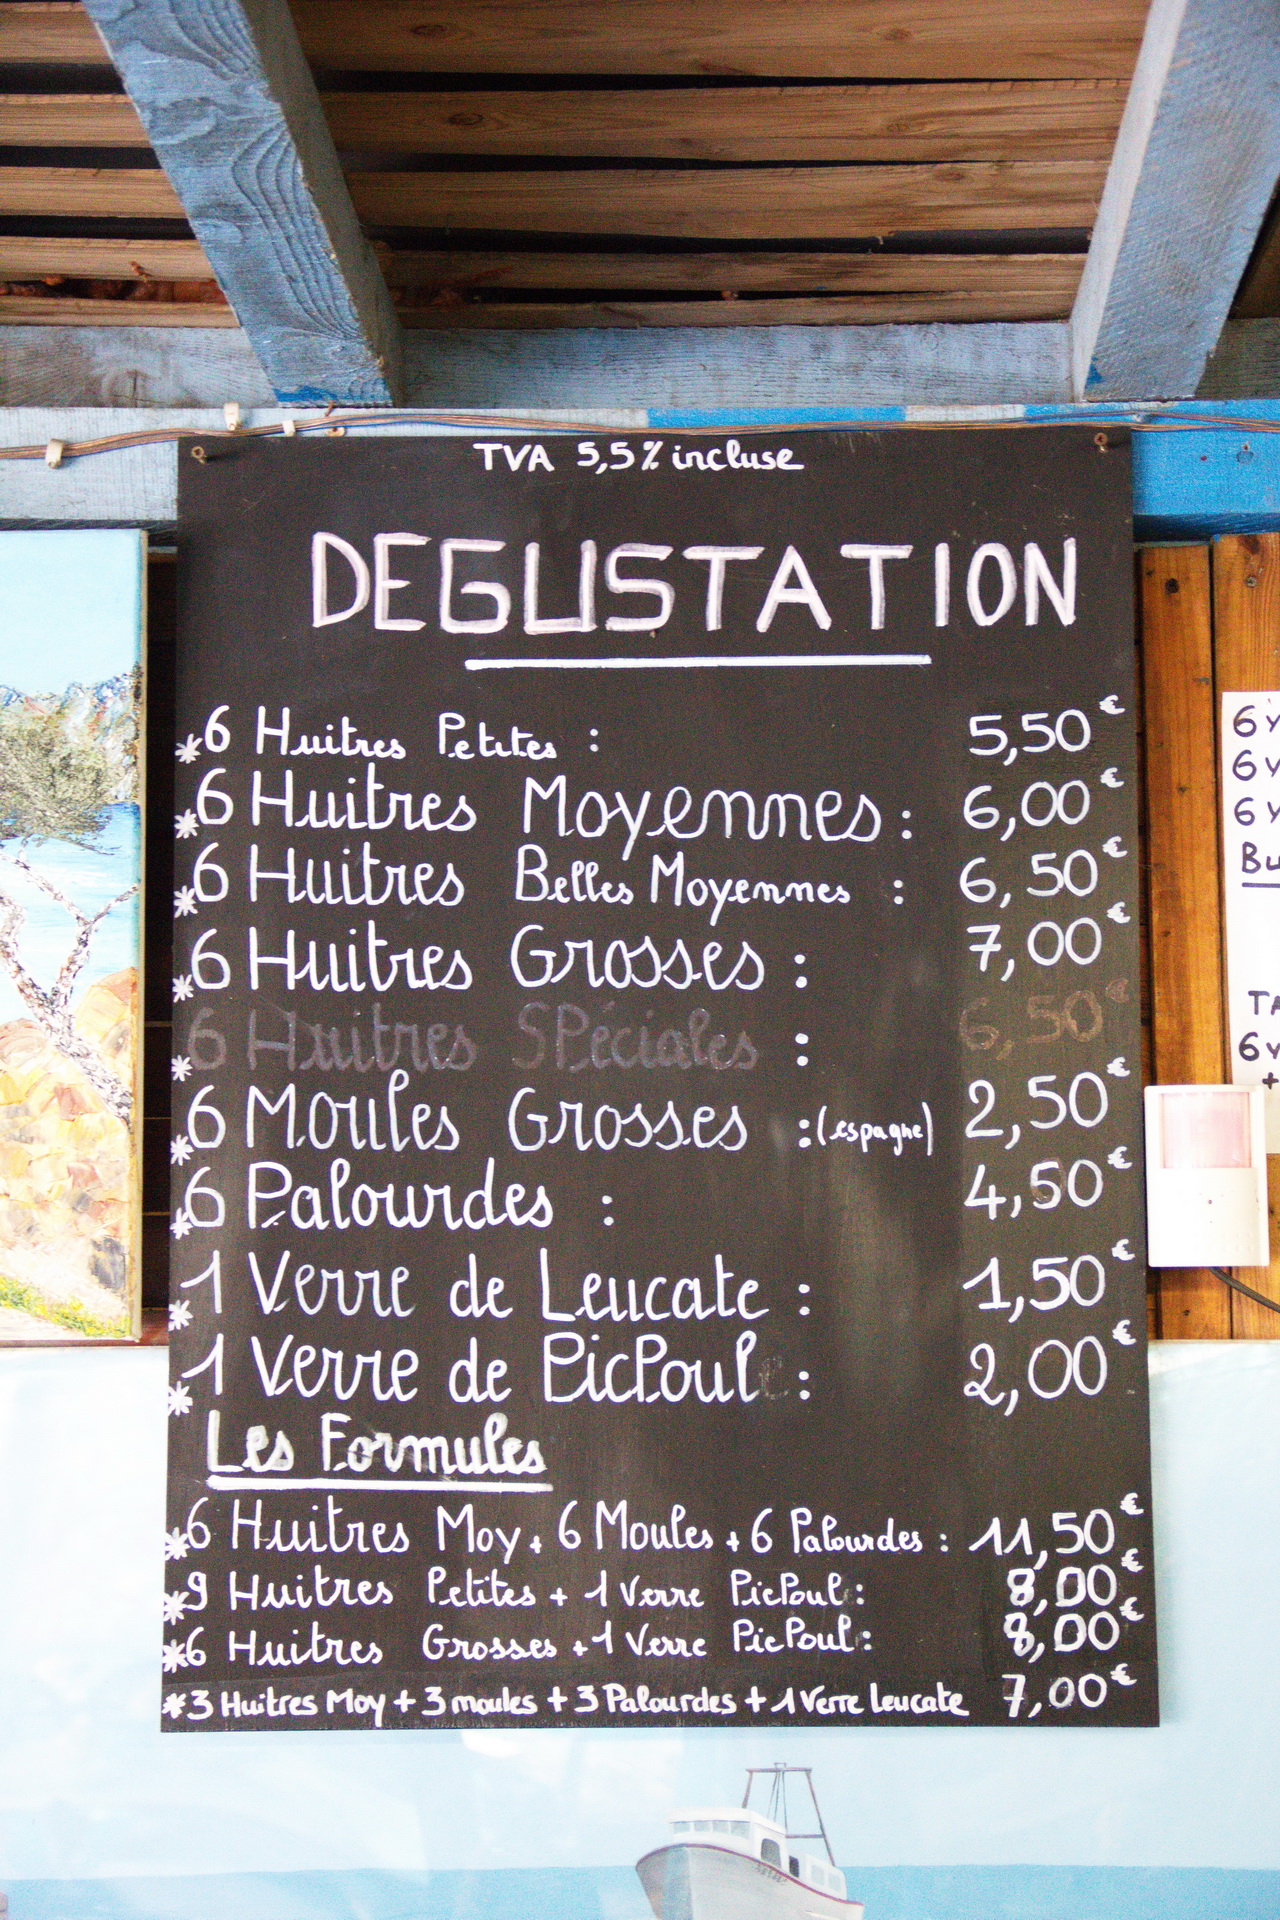 TVA 5,5% incluse
DEGUSTATION
*6 Huitres Petites : 5,50€
*6 Huitres Moyennes : 6,00€
*6 Huitres Belles Moyennes : 6,50€
*6 Huitres Grosses : 7,00€
*6 Huitres SPéciales : 6,50€
*6 Moules Grosses :(espagne) 2,50€
*6 Palourdes : 4,50€
*1 Verre de Leucate : 1,50€
*1 Verre de PicPoul : 2,00€
Les Formules
*6 Huitres Moy + 6 Moules + 6 Palourdes : 11,50€
*9 Huitres Petites + 1 Verre PicPoul : 8,00€
*6 Huitres Grosses + 1 Verre PicPoul : 8,00€
*3 Huitres Moy + 3 moules + 3 Palourdes + 1 Verre Leucate 7,00€
6
6
6
6
+